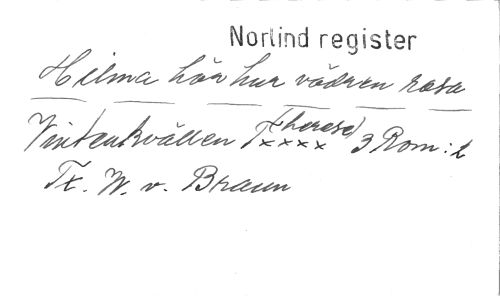 Norlind register
Hilma hör hur vädren rasa
Vinterkvällen Txxxx (Therese) 3 Rom: 2
Tx. W. v. Braun